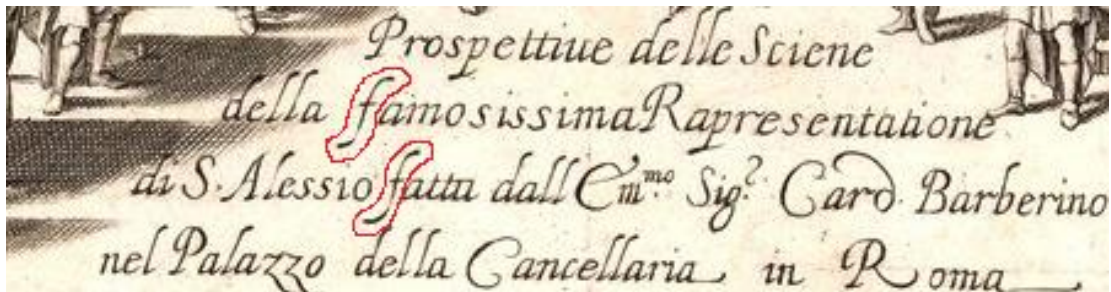 Prospettiue delle Sciene
della famosissima Rapresentatione
di S. Alessio fatta dall Em.mo Sig.r Card. Barberino
nel Palazzo della Cancellaria in Roma